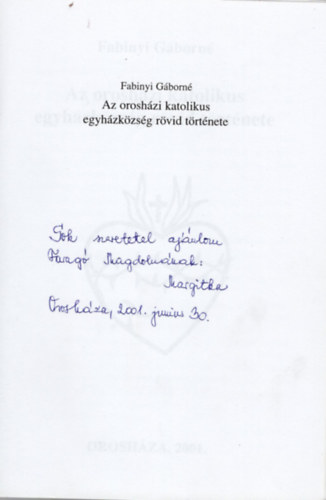 Fabinyi Gáborné
Az orosházi katolikus
egyházközség rövid története
Sok szeretettel ajánlom
Faragó Magdolnának:
Margitka
Orosháza, 2001. június 30.
OROSHÁZA, 2001.